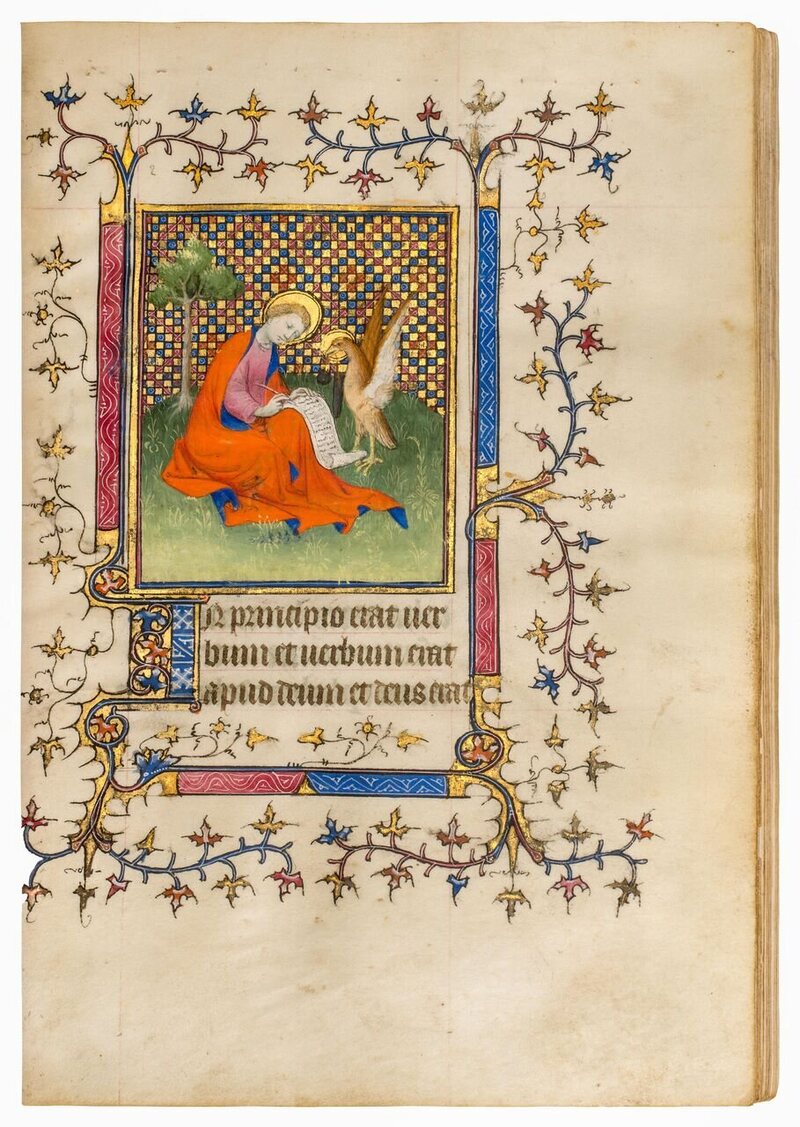 In principio erat uer
bum et uerbum erat
apud deum et deus erat